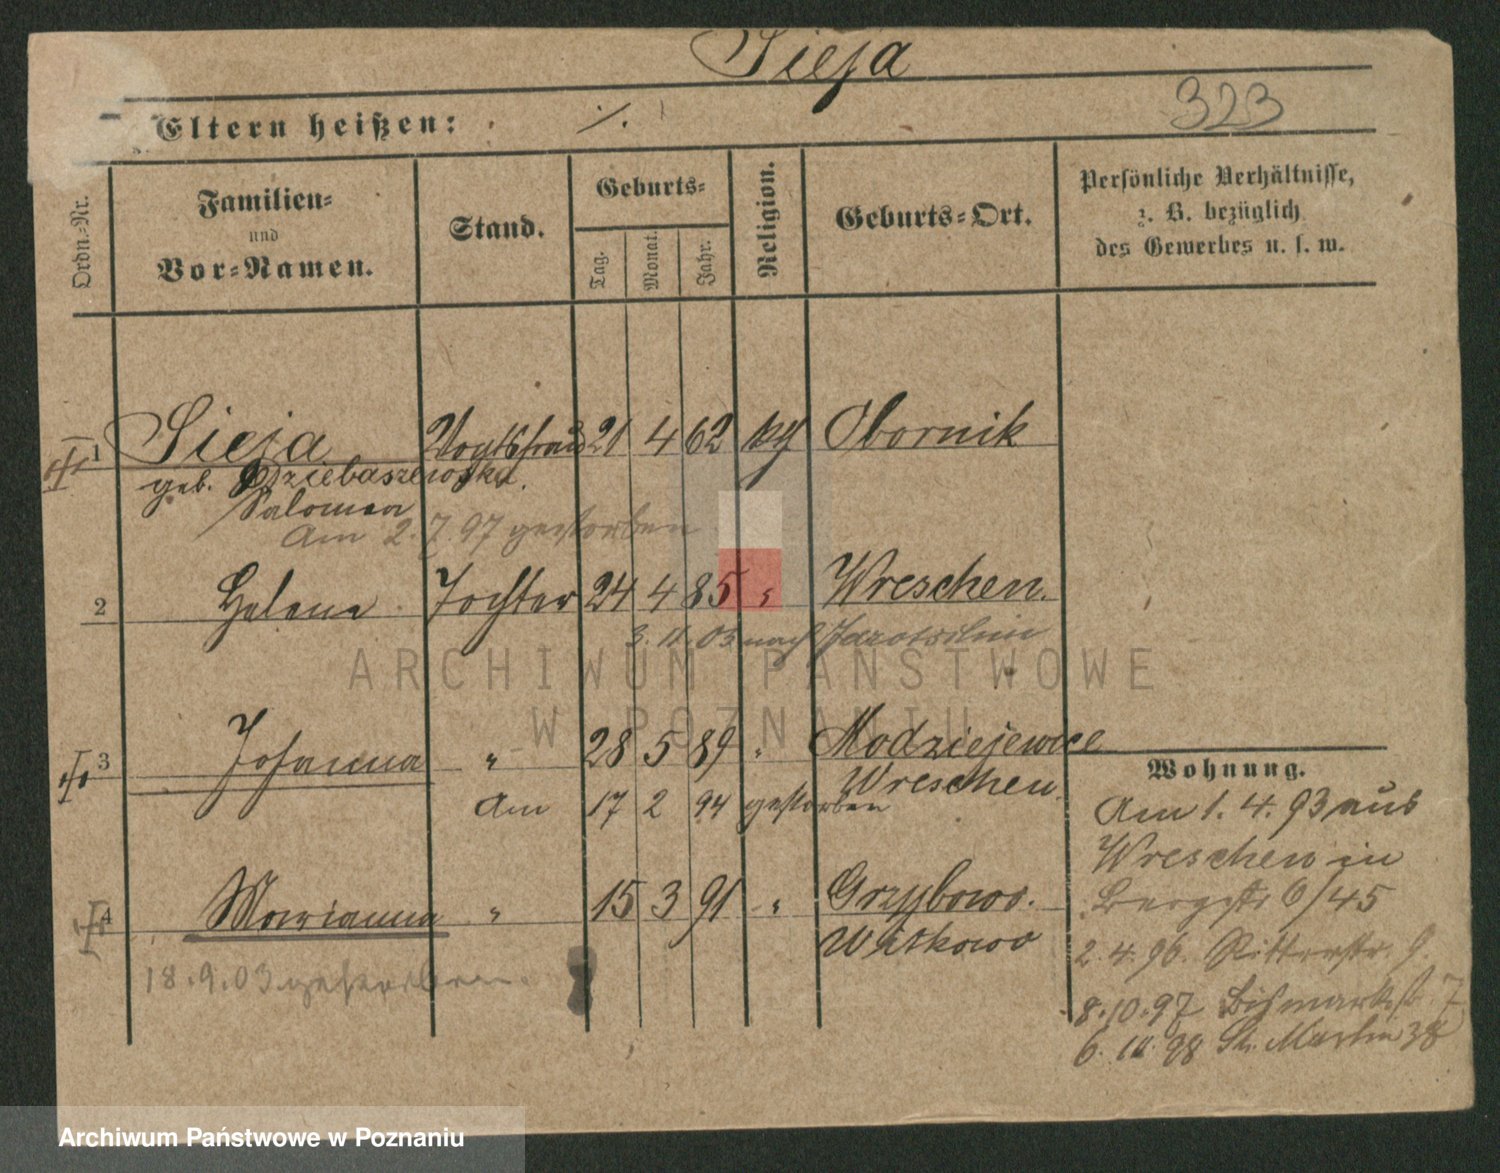 Sieja
323
Eltern heißen: ./.
Ordn.-Nr.
Familien-
und
Vor-Namen.
Stand.
Geburts-
Tag.
Monat.
Jahr.
Religion.
Geburts-Ort.
Persönliche Verhältnisse,
z. B. bezüglich
des Gewerbes u. s. w.
1 Sieja Vogtsfrau 21 4 62 kg Obornik
geb. Dziebaszewska
Salomea
Am 2. 7. 97 gestorben
2 Helene Tochter 24 4 85 " Wreschen.
3. 11. 03 nach
3 Johanna " 28 5 89 " Modziejewice
Wreschen
Am 17 2 94 gestorben
4 Marianna " 15 3 91 " Grzybowo.
Witkowo
18.9.03 gestorben.
Wohnung.
Am 1. 4. 93 aus
Wreschen in
Bergstr 6/45
2. 4. 96. Ritterstr. 9.
8.10.97 Bismarkst. 7
6. 10. 98 St. Martin 38
ARCHIWUM PAŃSTWOWE
W POZNANIU
Archiwum Państwowe w Poznaniu